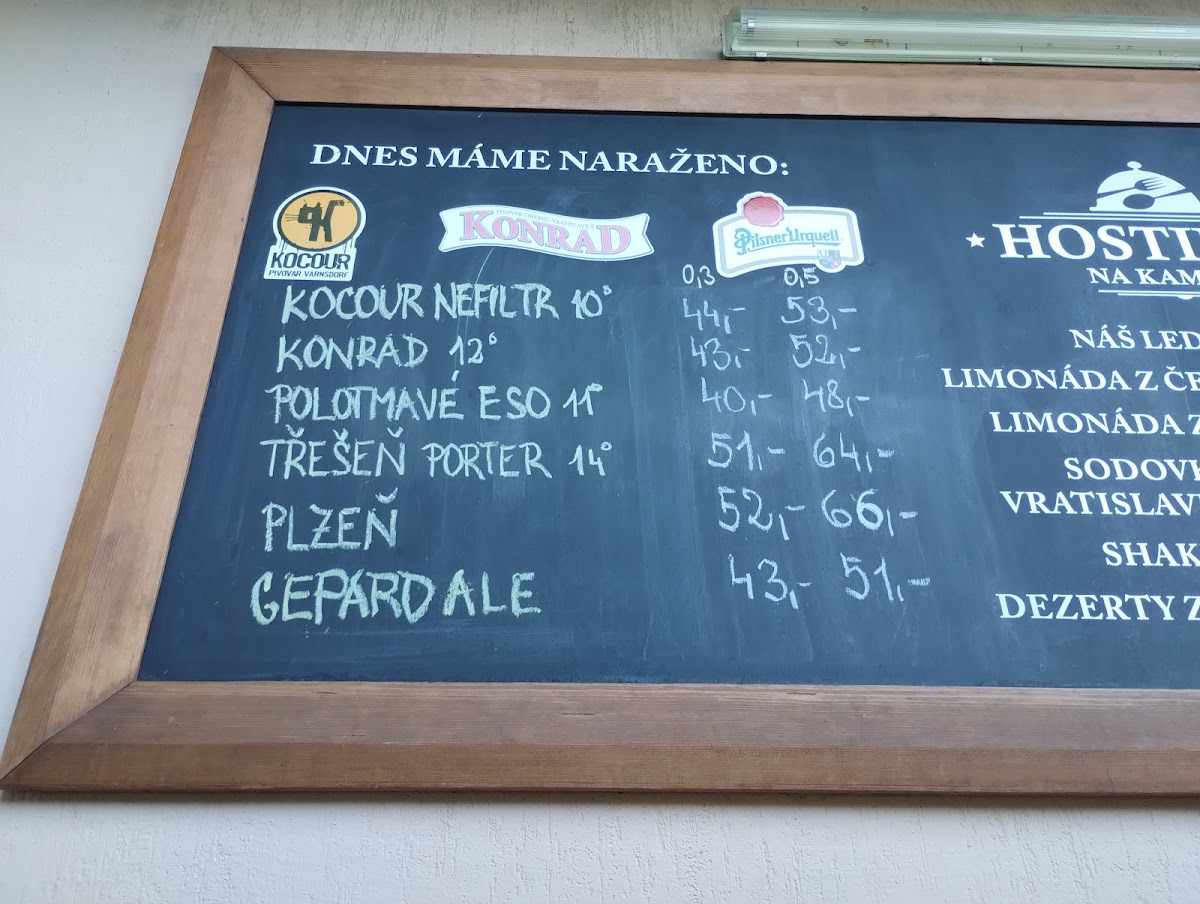 DNES MÁME NARAŽENO:
KOCOUR
PIVOVAR VARNSDORF
PIVOVAR LIBEREC-VRATISLAVICE
KONRAD
Pilsner Urquell
0,3 0,5
KOCOUR NEFILTR 10° 44,- 53,-
KONRAD 12° 43,- 52,-
POLOTMAVÉ ESO 11° 40,- 48,-
TŘEŠEŇ PORTER 14° 51,- 64,-
PLZEŇ 52,- 66,-
GEPARD ALE 43,- 51,-
HOSTI
NA KAM
NÁŠ LED
LIMONÁDA Z ČE
LIMONÁDA Z
SODOV
VRATISLAV
SHAK
DEZERTY Z